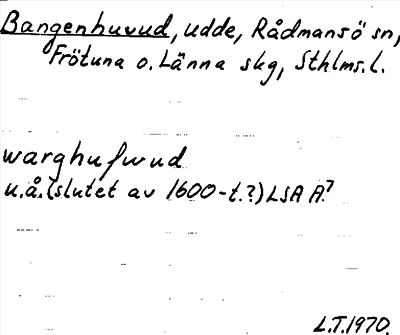 Bangenhuvud, udde, Rådmansö sn,
Frötuna o. Länna skg, Sthlms. l.
warghufwud
u.å. (slutet av 1600-t.?) LSA A⁷
L.T. 1970.